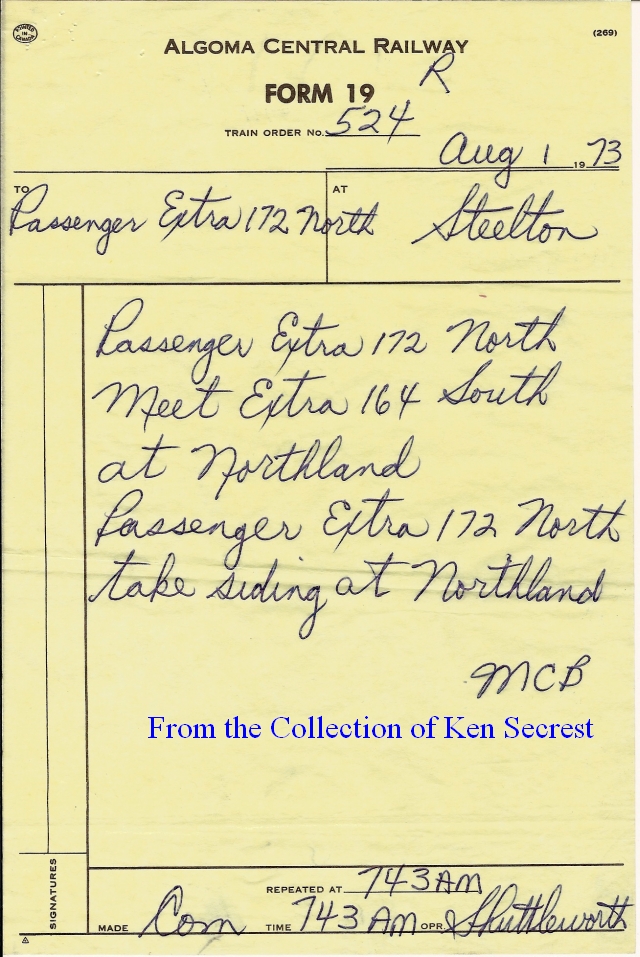 PRINTED IN CANADA
(269)
ALGOMA CENTRAL RAILWAY
FORM 19 R
TRAIN ORDER NO. 524
Aug 1 19 73
TO AT
Passenger Extra 172 North Steelton
Passenger Extra 172 North
Meet Extra 164 South
at Northland
Passenger Extra 172 North
take siding at Northland
MCB
From the Collection of Ken Secrest
SIGNATURES
REPEATED AT 743 AM
MADE Com TIME 743 AM OPR. Shuttleworth